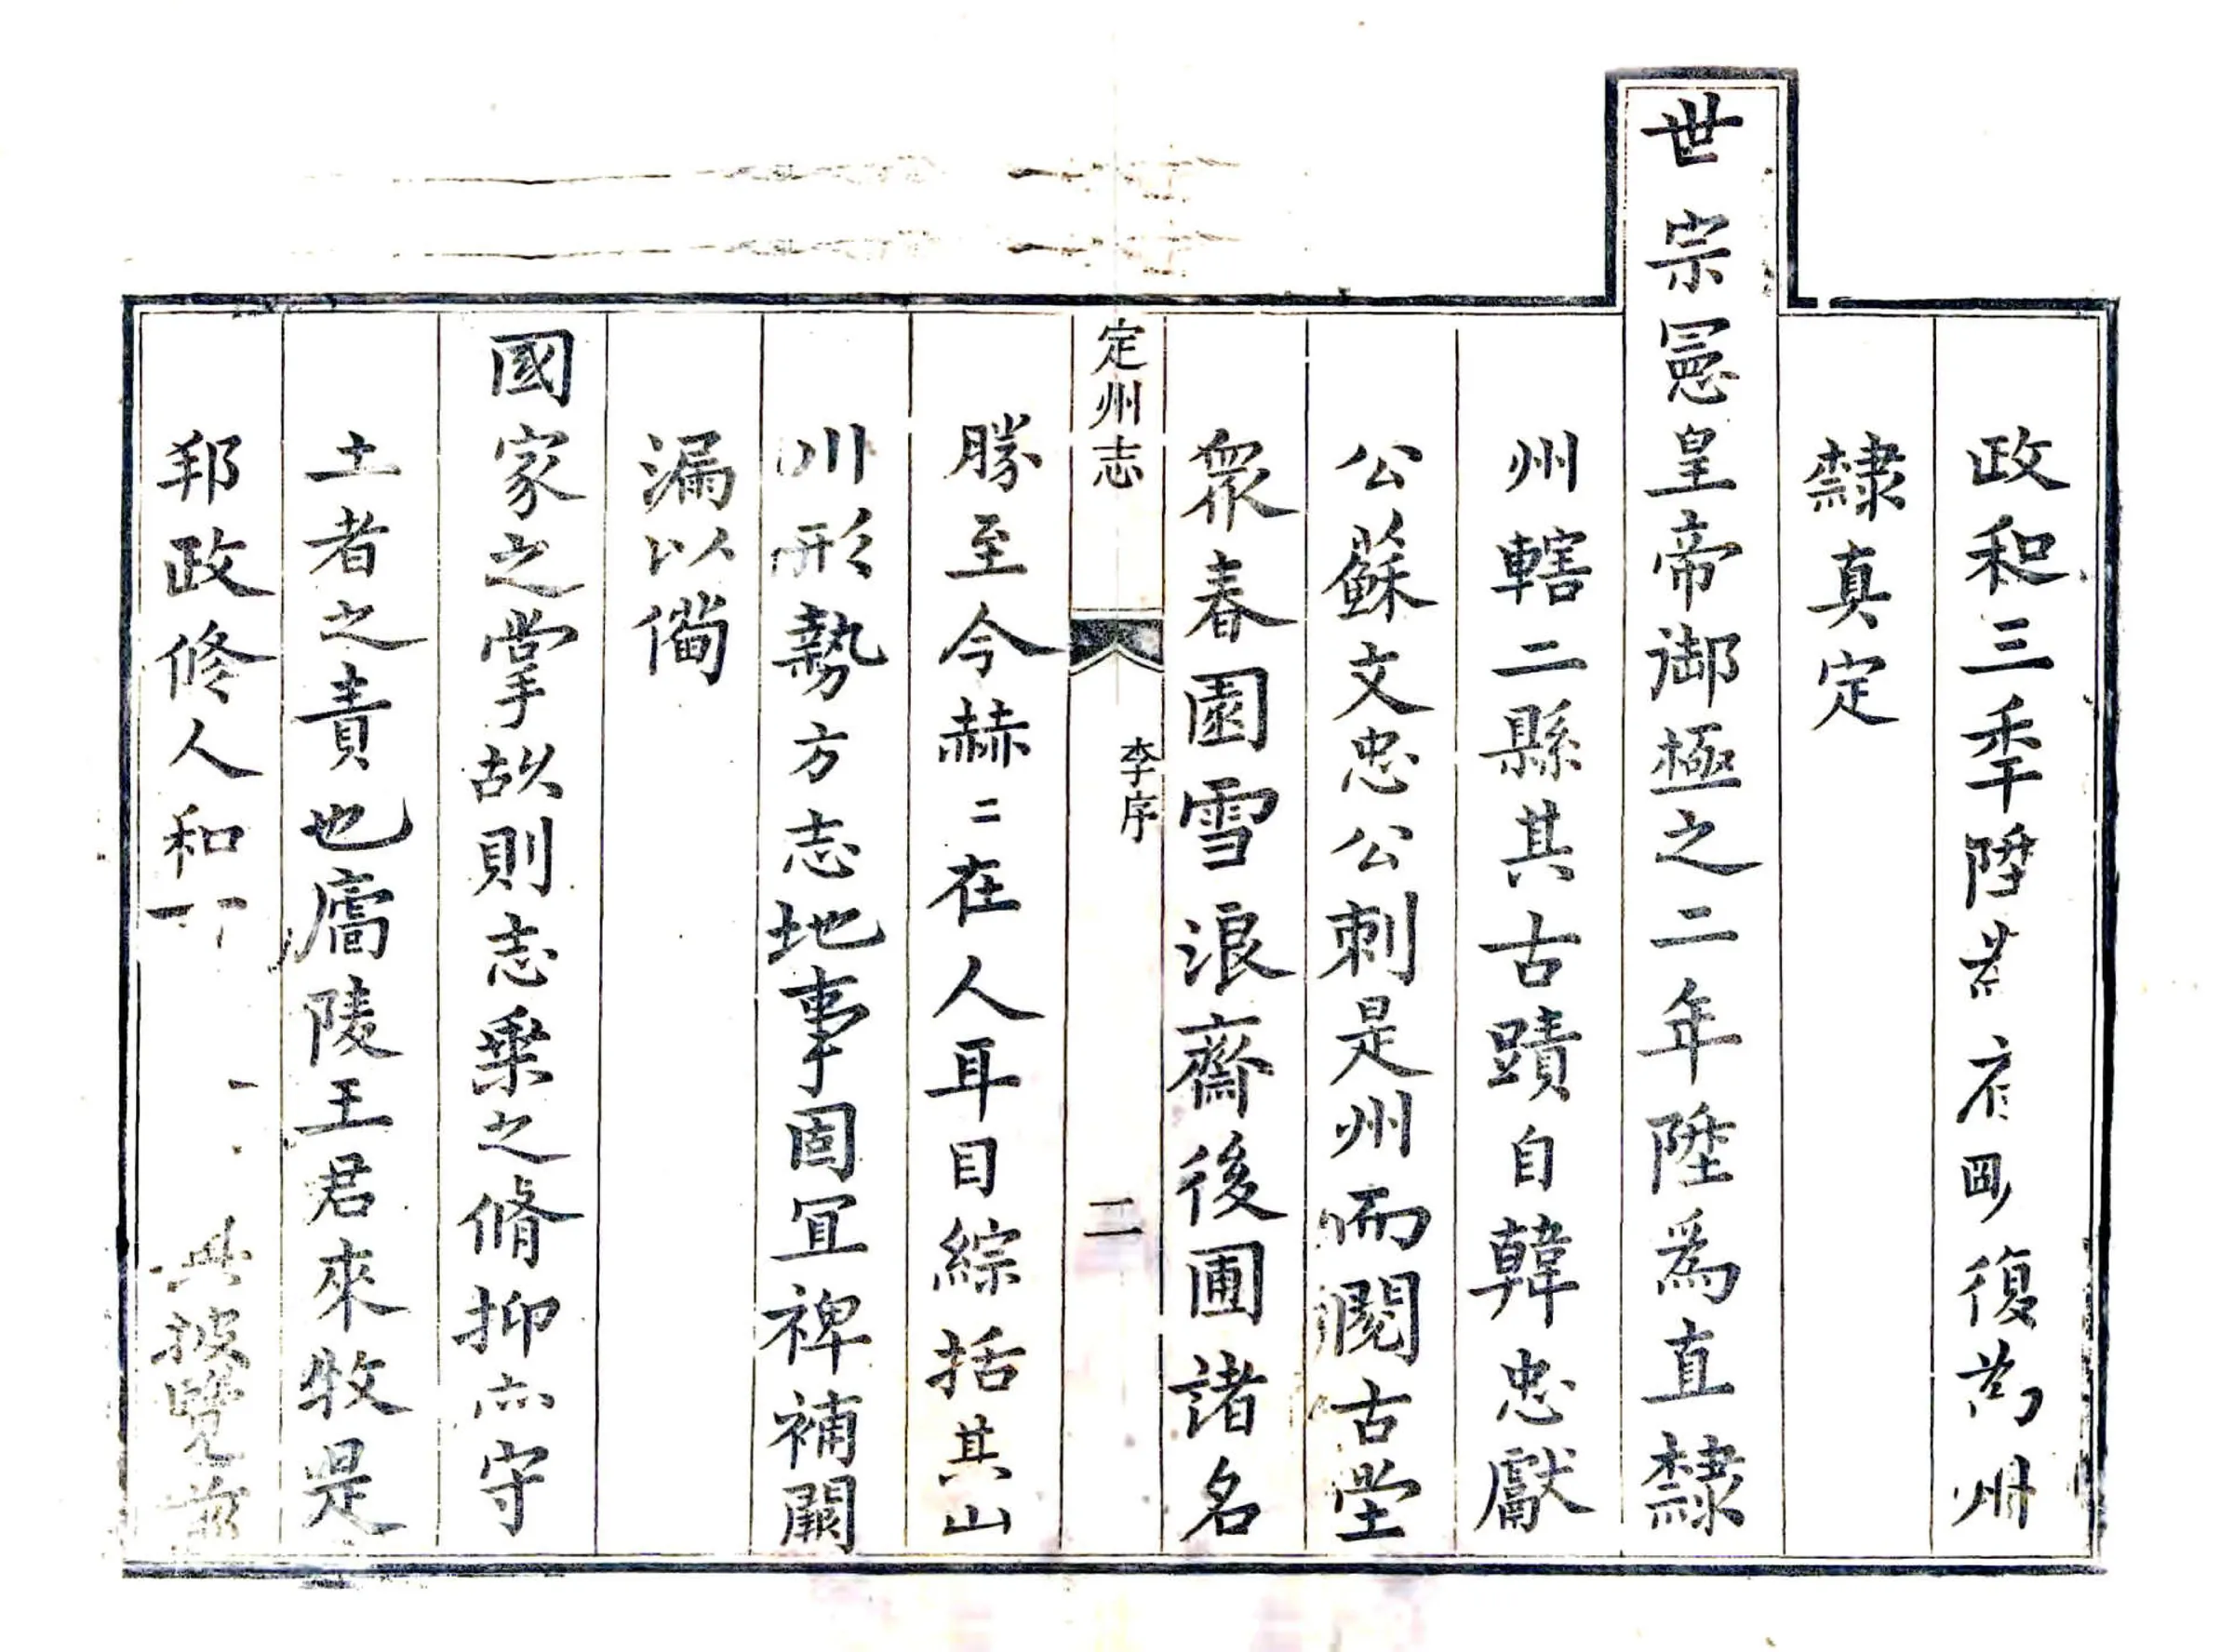 政和三秊陞爲府明復爲州
隸真定
世宗憲皇帝御極之二年陞爲直隸
州轄二縣其古蹟自韓忠獻
公蘇文忠公刺是州而閱古堂
衆春園雪浪齋後圃諸名
定州志 李序 二
勝至今赫二在人耳目綜括其山
川形勢方志地事固冝裨補闕
漏以僃
國家之掌故則志乗之脩抑亦守
土者之責也廬陵王君來牧是
邦政修人和披覽